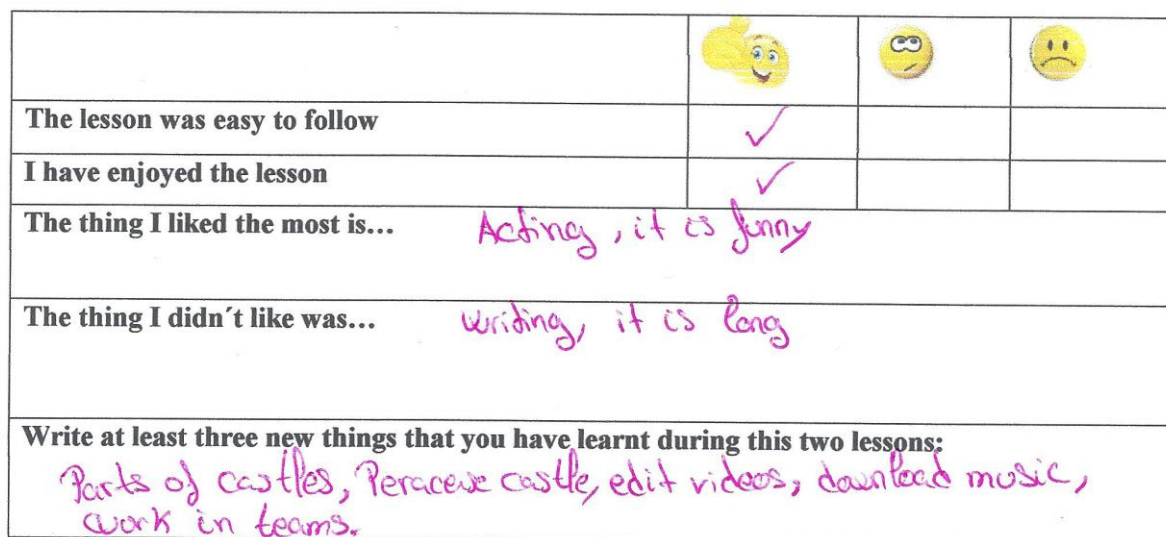 The lesson was easy to follow ✓
I have enjoyed the lesson ✓
The thing I liked the most is... Acting, it is funny
The thing I didn´t like was... writing, it is long
Write at least three new things that you have learnt during this two lessons:
Parts of castles, castle, edit videos, download music,
work in teams.